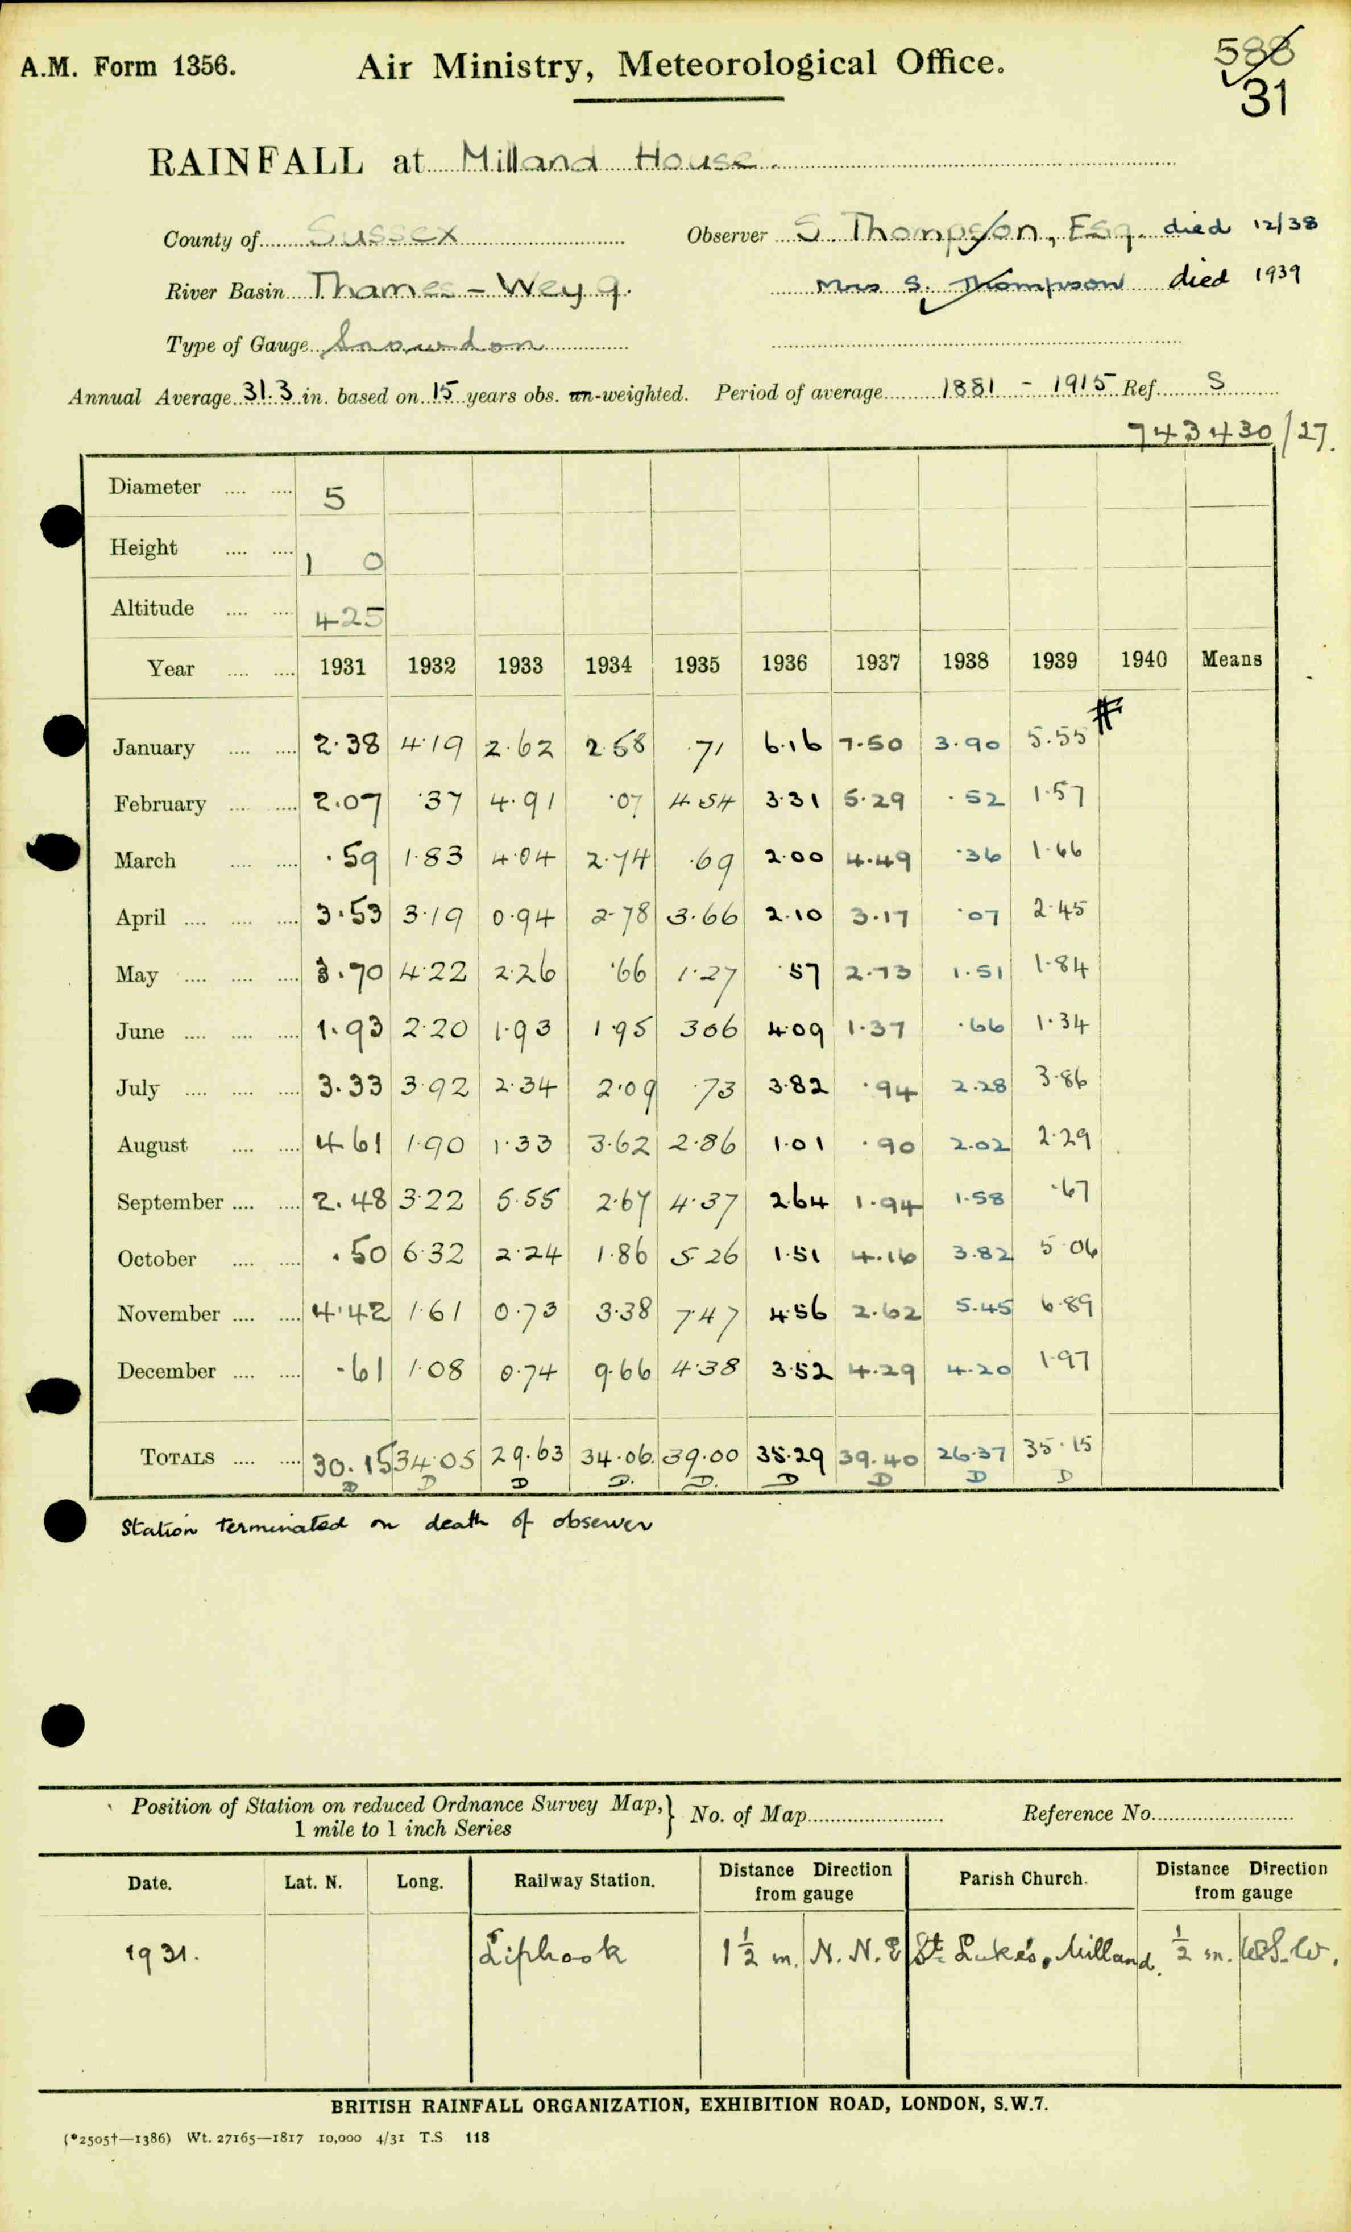 A.M. Form 1356. Air Ministry, Meteorological Office. 588
31
RAINFALL at Milland House.
County of Sussex Observer S. Thompson, Esq. died 12/38
River Basin Thames - Wey 9. Mrs S. Thompson died 1939
Type of Gauge Snowdon
Annual Average 31.3 in. based on 15 years obs. un-weighted. Period of average 1881 - 1915 Ref. S
743430/27.
Diameter 5
Height 1 0
Altitude 425
Year 1931 1932 1933 1934 1935 1936 1937 1938 1939 1940 Means
January 2.38 4.19 2.62 2.58 .71 6.16 7.50 3.90 5.55 #
February 2.07 .37 4.91 .07 4.54 3.31 5.29 .52 1.57
March .59 1.83 4.04 2.74 .69 2.00 4.49 .36 1.66
April 3.53 3.19 0.94 2.78 3.66 2.10 3.17 .07 2.45
May 3.70 4.22 2.26 .66 1.27 .57 2.73 1.51 1.84
June 1.93 2.20 1.93 1.95 3.06 4.09 1.37 .66 1.34
July 3.33 3.92 2.34 2.09 .73 3.82 .94 2.28 3.86
August 4.61 1.90 1.33 3.62 2.86 1.01 .90 2.02 2.29
September 2.48 3.22 5.55 2.67 4.37 2.64 1.94 1.58 .67
October .50 6.32 2.24 1.86 5.26 1.51 4.16 3.82 5.06
November 4.42 1.61 0.73 3.38 7.47 4.56 2.62 5.45 6.89
December .61 1.08 0.74 9.66 4.38 3.52 4.29 4.20 1.97
TOTALS 30.15 34.05 29.63 34.06. 39.00 35.29 39.40 26.37 35.15
D D D D. D. D D D D
Station terminated on death of observer
Position of Station on reduced Ordnance Survey Map, } No. of Map Reference No.
1 mile to 1 inch Series
Date. Lat. N. Long. Railway Station. Distance Direction from gauge Parish Church. Distance Direction from gauge
1931. Liphook 1½ m. N.N.E St. Luke's, Milland. ½ m. W.S.W.
BRITISH RAINFALL ORGANIZATION, EXHIBITION ROAD, LONDON, S.W.7.
(*2505†—1386) Wt. 27165—1817 10,000 4/31 T.S 118